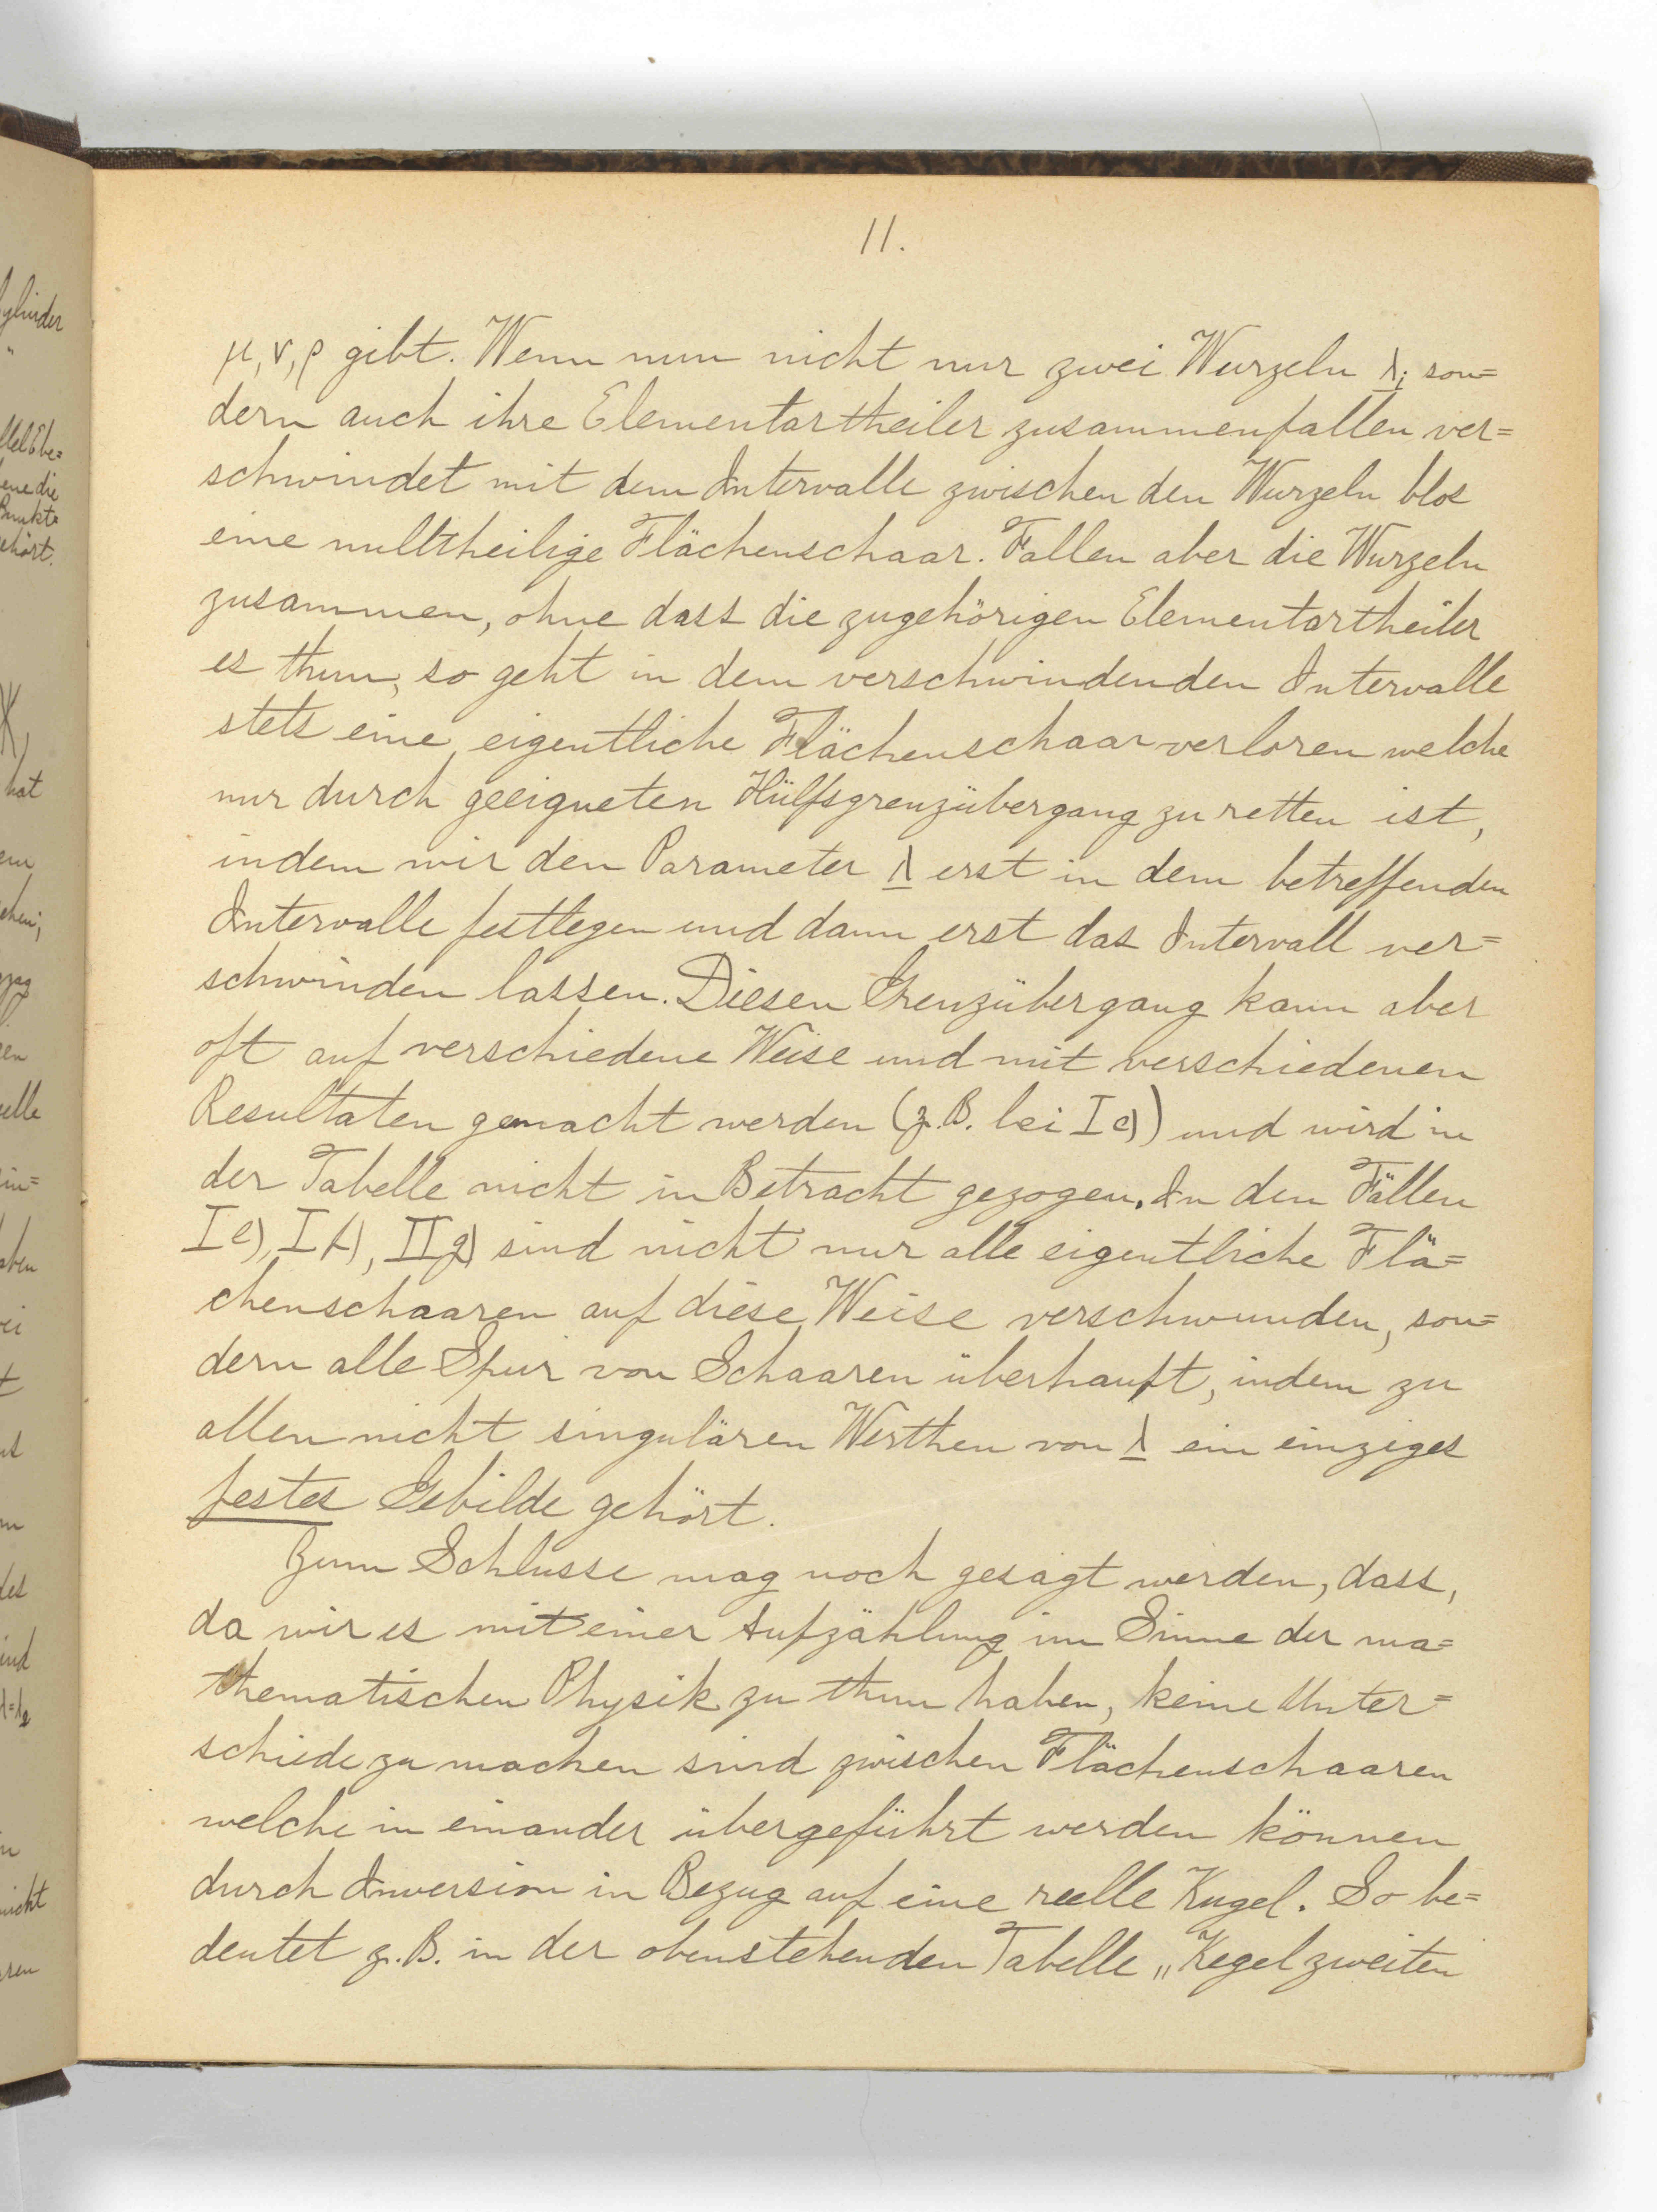 11.
μ, ν, ρ gibt. Wenn nun nicht nur zwei Wurzeln λi son=
dern auch ihre Elementartheiler zusammenfallen ver=
schwindet mit dem Intervalle zwischen den Wurzeln blos
eine nulltheilige Flächenschaar. Fallen aber die Wurzeln
zusammen, ohne dass die zugehörigen Elementartheiler
es thun, so geht in dem verschwindenden Intervalle
stets eine eigentliche Flächenschaar verloren welche
nur durch geeigneten Hülfsgrenzübergang zu retten ist,
indem wir den Parameter λ erst in dem betreffenden
Intervalle festlegen und dann erst das Intervall ver=
schwinden lassen. Diesen Grenzübergang kann aber
oft auf verschiedene Weise und mit verschiedenen
Resultaten gemacht werden (z.B. bei I e)) und wird in
der Tabelle nicht in Betracht gezogen. In den Fällen
I e), I f), II g) sind nicht nur alle eigentliche Flä=
chenschaaren auf diese Weise verschwunden, son=
dern alle Spur von Schaaren überhaupt, indem zu
allen nicht singulären Werthen von λ ein einziges
festes Gebilde gehört.
Zum Schlusse mag noch gesagt werden, dass,
da wir es mit einer Aufzählung im Sinne der ma=
thematischen Physik zu thun haben, keine Unter=
schiede zu machen sind zwischen Flächenschaaren
welche in einander übergeführt werden können
durch Inversion in Bezug auf eine reelle Kugel. So be=
deutet z.B. in der obenstehenden Tabelle „Kegel zweiten